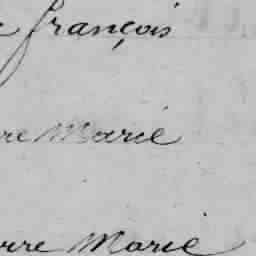 françois
re Marie
rre Marie